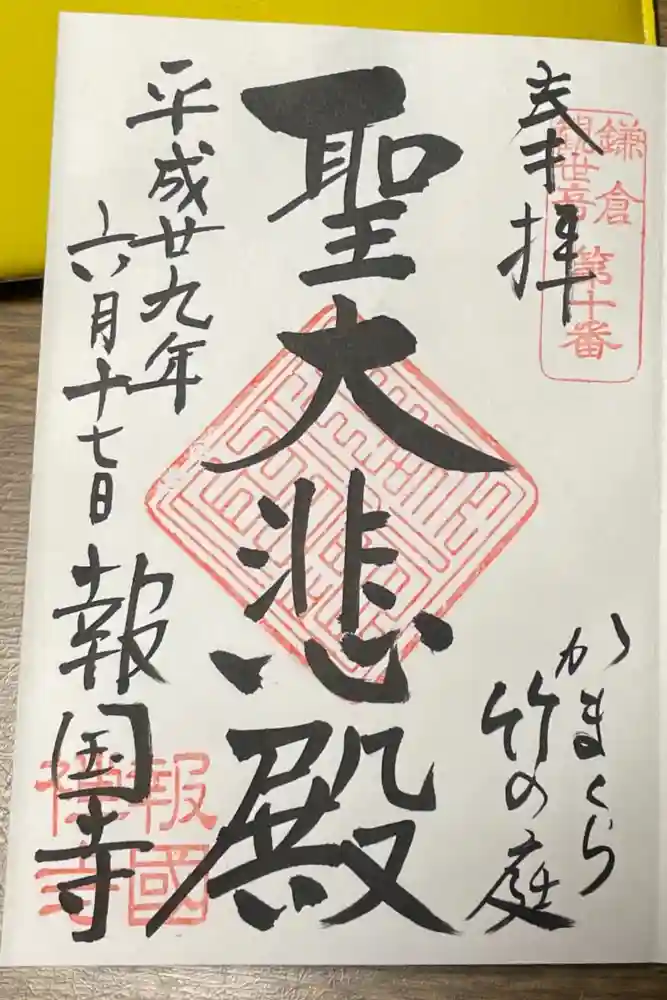 奉拝
鎌倉
観世音第十番
かまくら
竹の庭
聖大悲殿
平成廿九年
六月十七日
報国寺
報國
禅寺